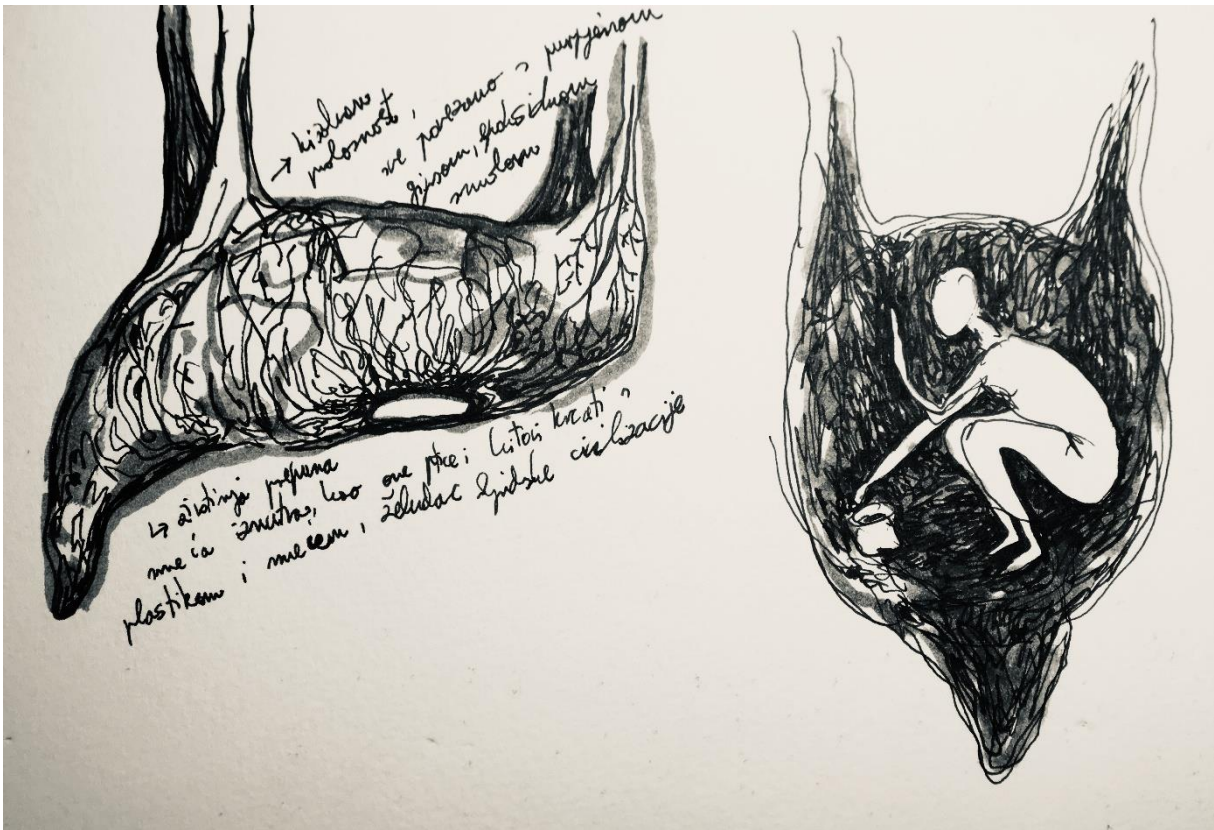 →
sve povezano s purpjenom
gipsom, epoksidnom
smolom
↳ životinja prepuna
smeća iznutra, kao one ptice i kitovi krcati s
plastikom i smećem, želudac ljudske civilizacije